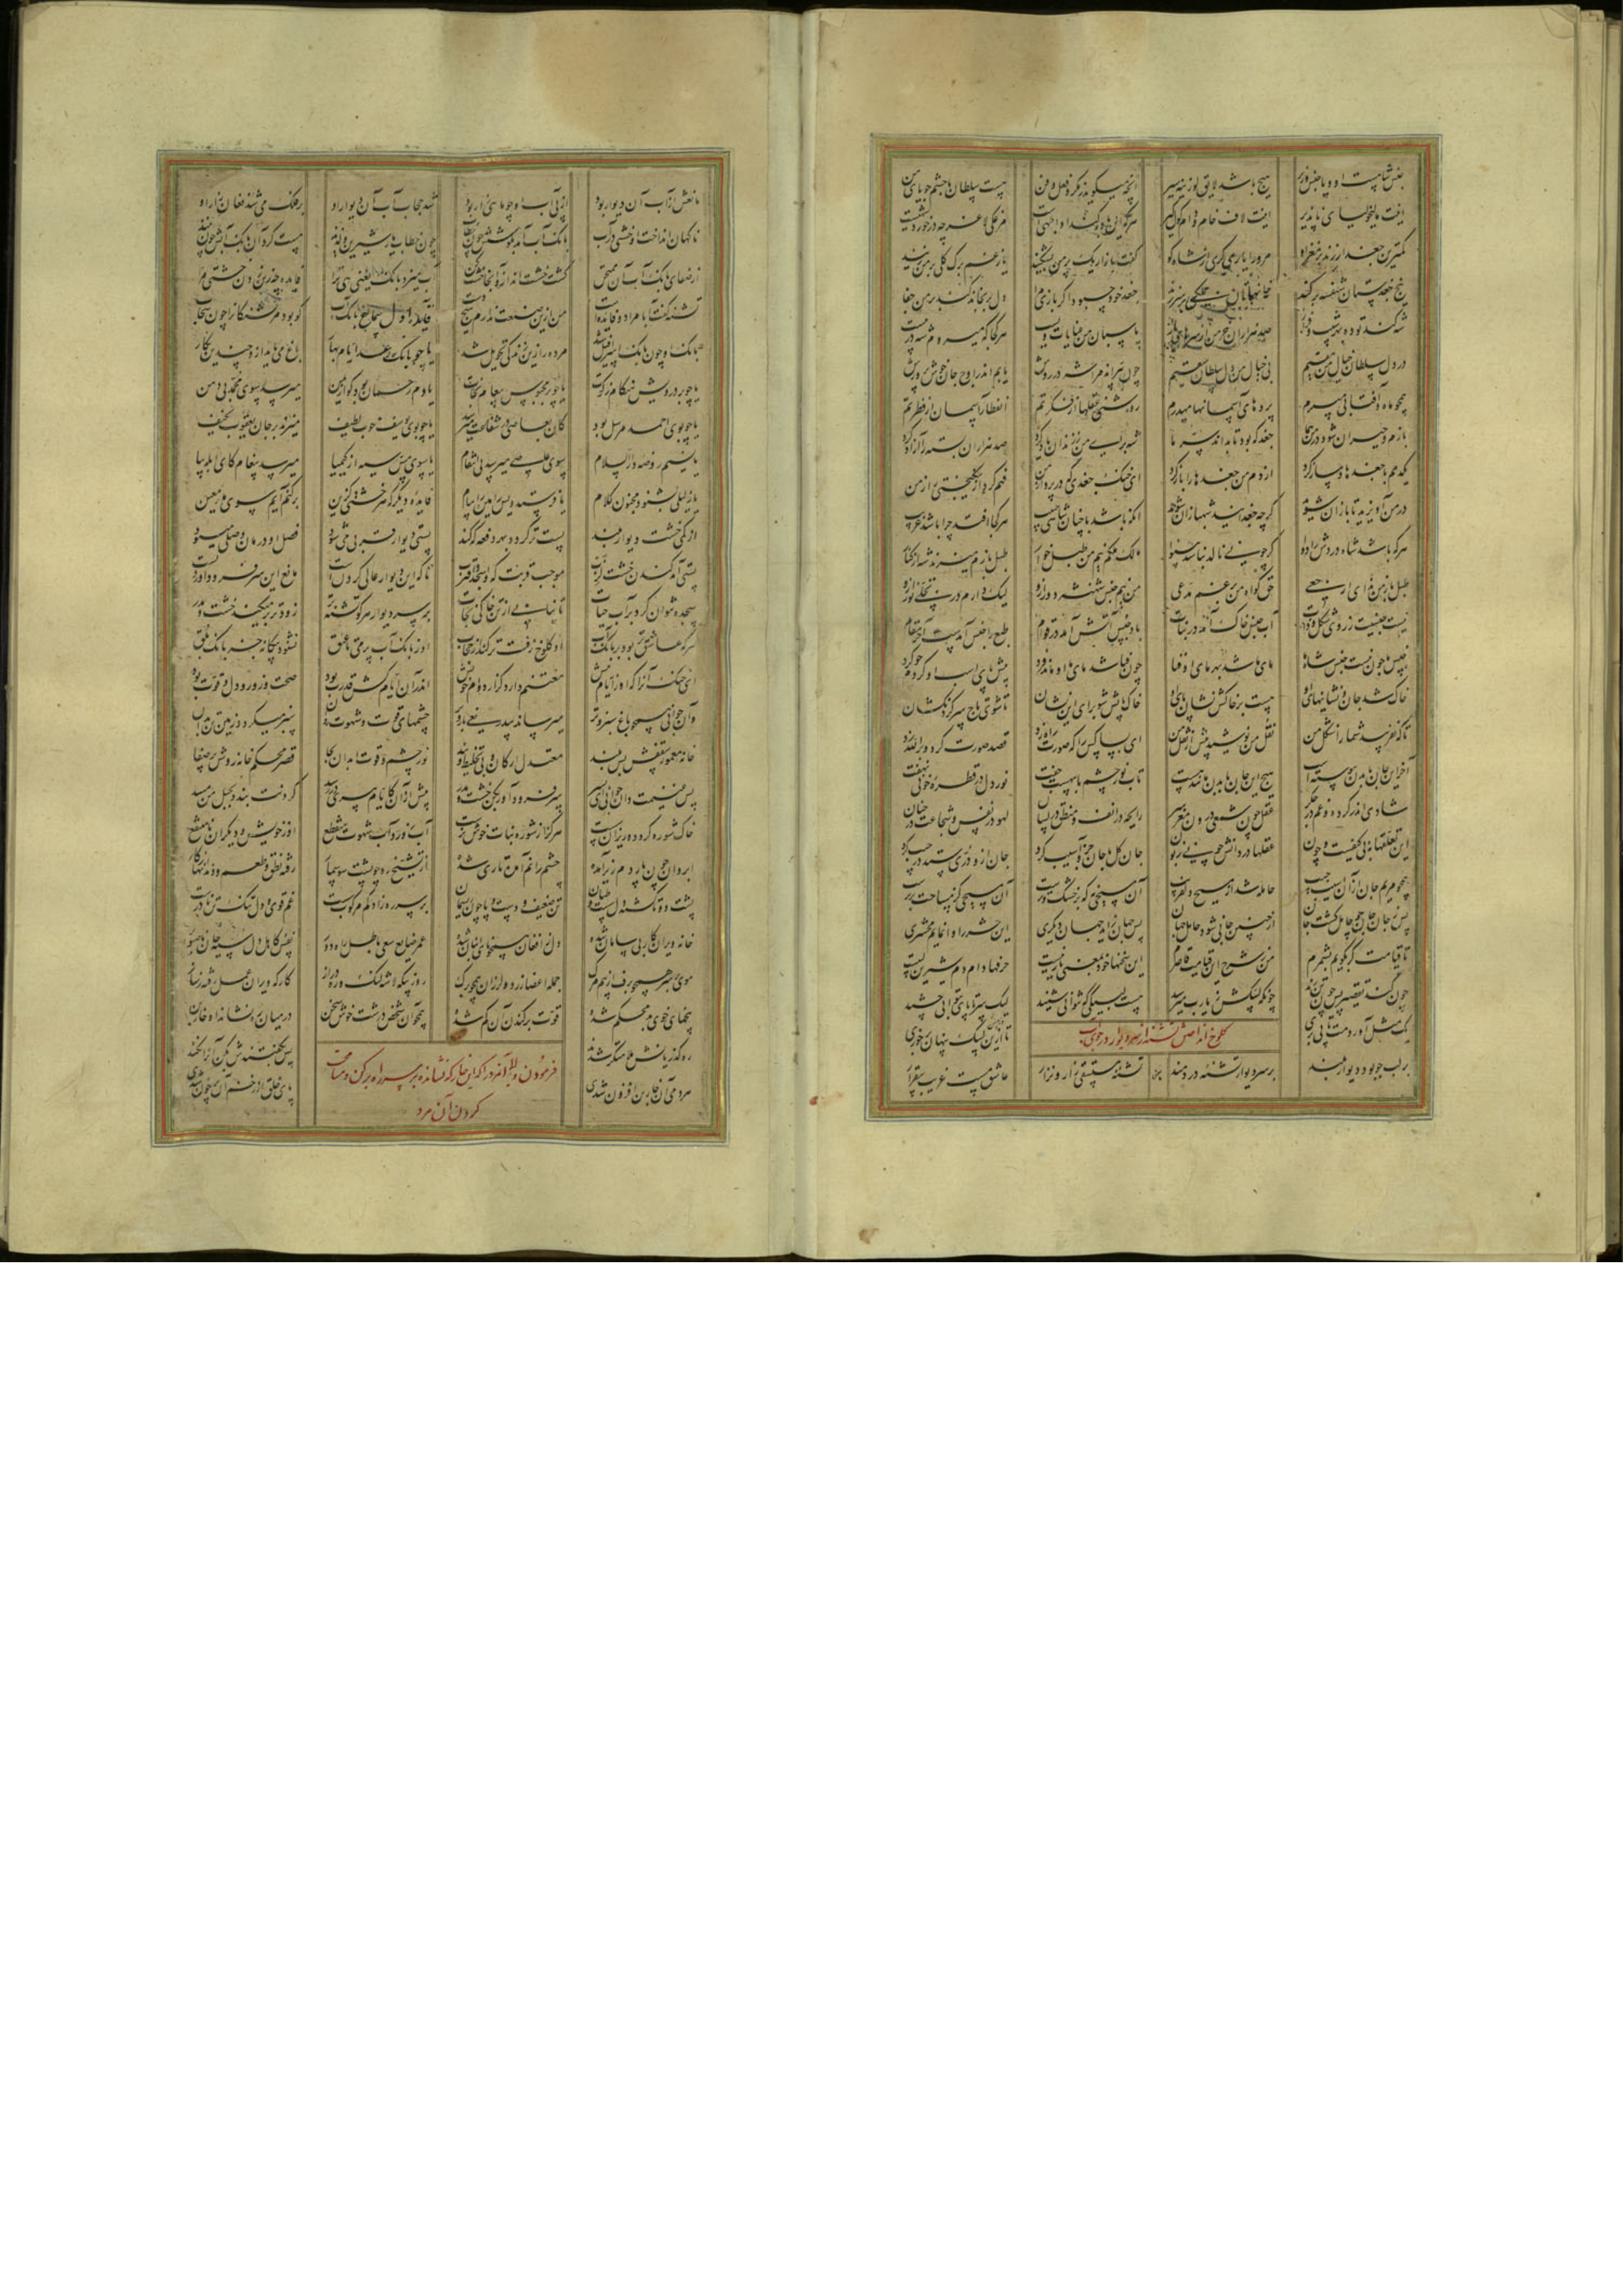 جنس شاهست او و یا جنس وزیر هیچ باشد لایق لوزینه سیر آنچه میگوید ز مکر و فعل و فن هست سلطان با حشم جویای من
اینت مالیخولیای ناپذیر اینت لاف خام و دام گول گیر هر که این باور کند از ابلهیست مرغک لاغر چه در خورد شهیست
کمترین جغد ار زند بر مغز او مر ورا یاری گری از شاه کو گفت باز ار یک پر من بشکند یا ز غم برگ گل بر من زند
بیخ جغدستان شهنشه بر کند خانمانهاتان همگی بر سر زند جغد خود چبود اگر بازی مرا دل برنجاند کند بر من جفا
شه کند توده بهر شیب و فراز صد هزاران خرمن از سرهای باز پاسبان من عنایات ویست هر کجا که میروم شه در پیست
در دل سلطان خیال من مقیم بی خیال من دل سلطان سقیم چون بپراند مرا شه در روش یابم اندر اوج جان خوش پرورش
همچو ماه و آفتابی میپرم پردهای آسمانها میدرم روشنی عقلها از فکرتم انفطار آسمان از فطرتم
بازم و حیران شود در من هما جغد که بود تا بداند سر ما شه برای من ز زندان یاد کرد صد هزاران بسته را آزاد کرد
یکدمم با جغدها دمساز کرد از دم من جغدها را باز کرد ای خنک جغدی که در پرواز من فهم کرد از نیکبختی راز من
در من آویزید تا بازان شوید گرچه جغدانید شهبازان شوید آنکه باشد با چنان شاهی حبیب هر کجا افتد چرا باشد غریب
هر که باشد شاه دردش را دوا گر چو نی نالد نباشد بینوا مالک ملکم نیم من طبل خوار طبل بازم میزند شه از کنار
طبل باز من ندای ارجعی حق گواه من برغم مدعی من نیم جنس شهنشه دور ازو لیک دارم در تجلی نور ازو
نیست جنسیت ز روی شکل و ذات آب جنس خاک آمد در نبات باد جنس آتش آمد در قوام طبع را جنس آمدست آخر مدام
جنس ما چون نیست جنس شاه ما مای ما شد بهر مای او فنا چون فنا شد مای ما او ماند فرد پیش پای اسب او گردم چو گرد
خاک شد جان و نشانیهای او هست بر خاکش نشان پای او خاک پایش شو برای این نشان تا شوی تاج سر گردنکشان
تا که نفریبد شما را شکل من نقل من نوشید پیش از نقل من ای بسا کس را که صورت راه زد قصد صورت کرد و بر الله زد
آخر این جان با بدن پیوسته است هیچ این جان با بدن مانند هست تاب نور چشم با پیهست جفت نور دل در قطره خونی نهفت
شادی اندر گرده و غم در جگر عقل چون شمعی درون مغز سر رایحه در انف و منطق در لسان لهو در نفس و شجاعت در جنان
این تعلقها نه بی کیفیت و چون عقلها در دانش چونی زبون جان کل با جان جزو آسیب کرد جان ازو دری ستد در جیب کرد
همچو مریم جان از آن آسیب جیب حامله شد از مسیح دلفریب آن مسیحی نه که بر خشک و ترست آن مسیحی کز مساحت برترست
پس ز جان جان چو حامل گشت جان از چنین جانی شود حامل جهان پس جهان زاید جهان دیگری این حشر را وا نماید محشری
تا قیامت گر بگویم بشمرم من ز شرح این قیامت قاصرم این سخنها خود بمعنی یا ربیست حرفها دام دم شیرین لبیست
چون کند تقصیر پس چون تن زند چونکه لبیکش ز یارب میرسد هست لبیکی که نتوانی شنید لیک سر تا پای بتوانی چشید
کلوخ انداختن تشنه از سر دیوار در جوی آب
یک مثل آوردمت تا پی بری تا ازین لبیک پنهان خوبری
بر لب جو بود دیوار بلند بر سر دیوار تشنه دردمند تشنه مستسقی زار و نزار عاشق مست غریب بیقرار
مانعش از آب آن دیوار بود از پی آب او چو ماهی زار بود شد حجاب آب آن دیوار او بر فلک می شد فغان زار او
ناگهان انداخت او خشتی در آب بانگ آب آمد بگوشش چون خطاب چون خطاب یار شیرین و لذیذ مست کرد آن بانگ آبش چون نبیذ
از صفای بانگ آب آن ممتحن گشت خشت انداز از آنجا خشت کن آب میزد بانگ یعنی هی ترا فایده چه زین زدن خشتی مرا
تشنه گفت آبا مرا دو فایده است من ازین صنعت ندارم هیچ دست فایده اول سماع بانگ آب کو بود مر تشنگان را چون سحاب
بانگ او چون بانگ اسرافیل شد مرده را زین زندگی تحویل شد یا چو بانگ رعد ایام بهار باغ می یابد ازو چندین نگار
یا چو بر درویش هنگام زکات یا چو بر محبوس پیغام نجات یا دم رحمان بود کو از یمن میرسد سوی محمد بی دهن
یا چو بوی احمد مرسل بود کان بعاصی در شفاعت میرسد یا چو بوی یوسف خوب لطیف میزند بر جان یعقوب نحیف
یا نسیم روضه دارالسلام سوی عاصی میرسد بی انتقام یا سوی مس سیه از کیمیا میرسد پیغام کای ابله بیا
یا ز لیلی بشنود مجنون کلام یا فرستد ویس رامین را پیام فایده دیگر که هر خشتی کزین بر کنم آیم سوی ماء معین
از کمی خشت دیوار بلند پست تر گردد بهر دفعه که کند پستی دیوار قربی می شود فصل او درمان وصلی میشود
پستی آمد کندن خشت لزب موجب قربت که واسجد واقترب تا که این دیوار عالی گردنست مانع این سر فرود آوردنست
سجده نتوان کرد بر آب حیات تا نیابی از تن خاکی نجات بر سر دیوار هر کو تشنه تر زودتر بر میکند خشت و مدر
هر که عاشق تر بود بر بانگ آب او کلوخ زفت تر کند از حجاب او ز بانگ آب پر می تا عنق نشنود بیگانه جز بانگ بلق
ای خنک آنرا که او ز ایام پیش مغتنم دارد گزارد وام خویش اندر آن ایام کش قدرت بود صحت و زور و دل و قوت بود
وآن جوانی همچو باغ سبز و تر میرساند بی دریغی بار و بر چشمهای قوت و شهوت روان سبز میگردد زمین تن بدان
خانه معمور و سقفش بس بلند معتدل ارکان و بی تخلیط و بند نور چشم و قوت ابدان بجا قصر محکم خانه روشن پر صفا
پس غنیمت دان جوانی ای پسر سر فرود آور بکن خشت و مدر پیش از آن کایام پیری در رسد گردنت بندد بحبل من مسد
خاک شوره گردد و ریزان و سست هرگز از شوره نبات خوش نرست آب زور و آب شهوت منقطع او ز خویش و دیگران نامنتفع
ابروان چون پاردم زیر آمده چشم را نم آمده تاری شده از تشنج رو چو پشت سوسمار رفته نطق و طعم و دندانها ز کار
پشت دوتا گشته دل سست و طپان تن ضعیف و دست و پا چون ریسمان بر سر ره زاد کم مرکوب سست غم قوی و دل تنک تن نادرست
خانه ویران کار بی سامان شده دل ز افغان همچو نای انبان شده عمر ضایع سعی باطل راه دور نفس کاهل دل سیه جان ناصبور
موی بر سر همچو برف از بیم مرگ جمله اعضا لرز لرزان همچو برگ روز بیگه لاشه لنگ و ره دراز کارگه ویران عمل رفته ز ساز
بیخهای خوی بد محکم شده قوت بر کندن آن کم شده همچو آن شخص درشت خوش سخن در میان ره نشاند او خاربن
فرمودن والی آنمرد را که این خاربن که نشانده بر سر راه بر کن و مساحت کردن آن مرد
ره گذریانش ملامتگر شدند پس بگفتندش بکن آنرا نکند
هر دمی آن خاربن افزون شدی پای خلق از زخم آن پر خون شدی